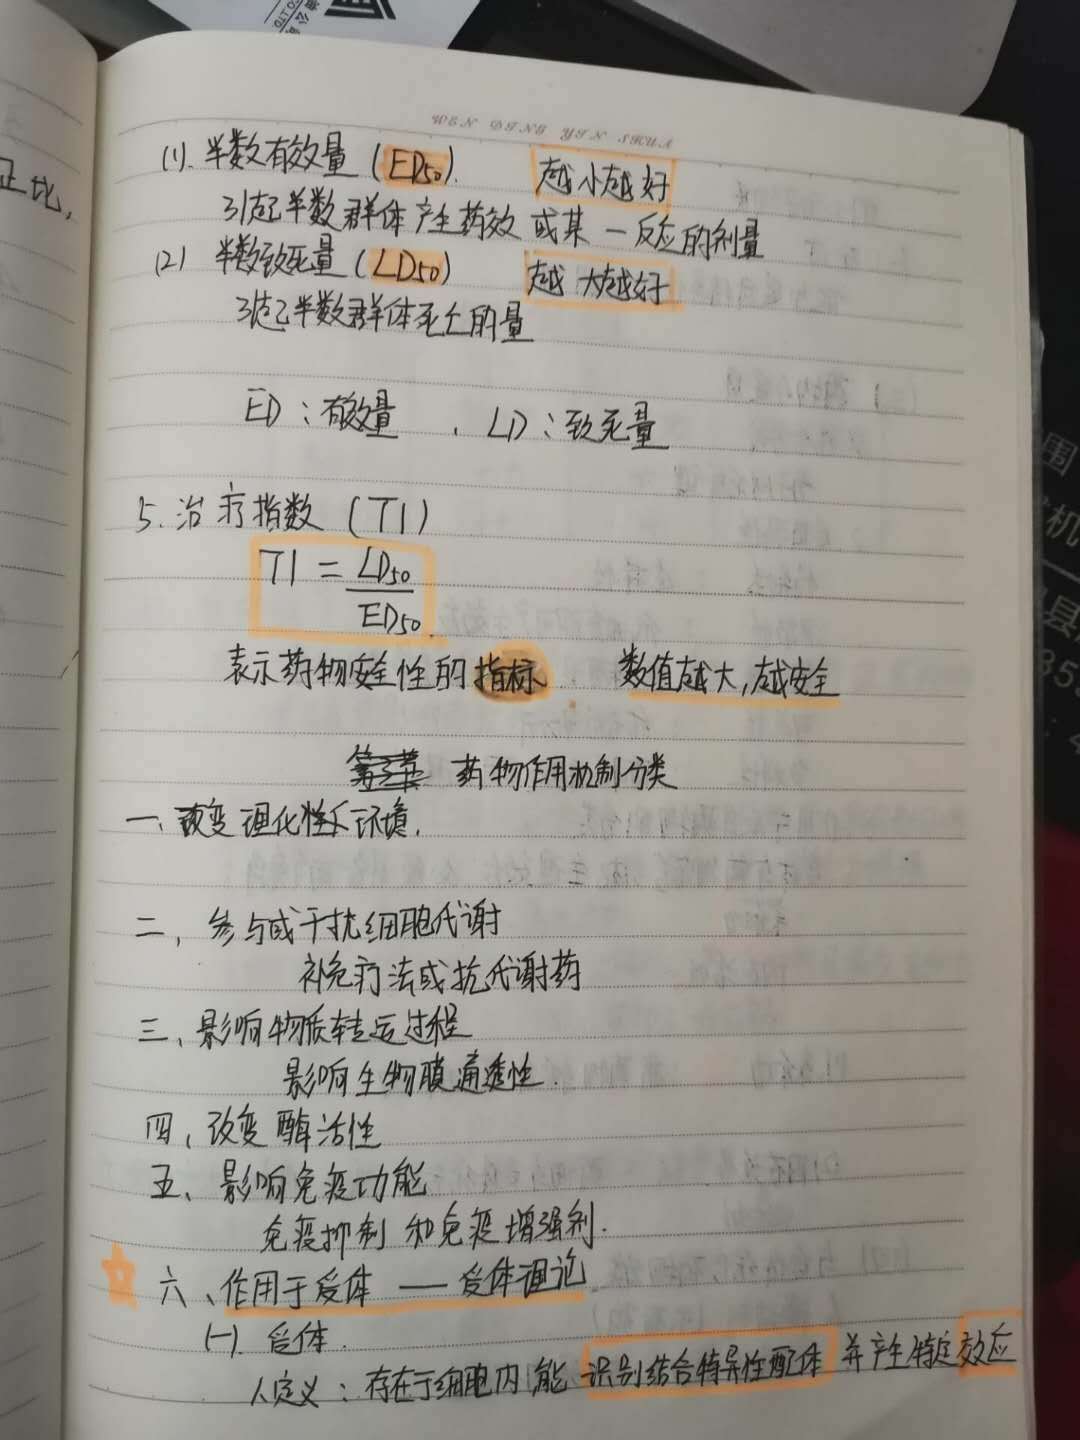 WEN DING YIN SHUA
正比，
(1). 半数有效量 (ED50). 越小越好
引起半数群体产生药效或某一反应的剂量
(2) 半数致死量 (LD50) 越大越好
引起半数群体死亡的量
ED：有效量 、LD：致死量
5. 治疗指数 (TI)
TI = LD50
ED50
表示药物安全性的指标 数值越大，越安全
药物作用机制分类
一、改变理化性质环境.
二、参与或干扰细胞代谢
补充疗法或抗代谢药
三、影响物质转运过程
影响生物膜通透性.
四、改变酶活性
五、影响免疫功能
免疫抑制和免疫增强剂.
六、作用于受体 —— 受体理论
(一) 受体.
1、定义：存在于细胞内，能识别结合特异性配体并产生特定效应
围
机
县